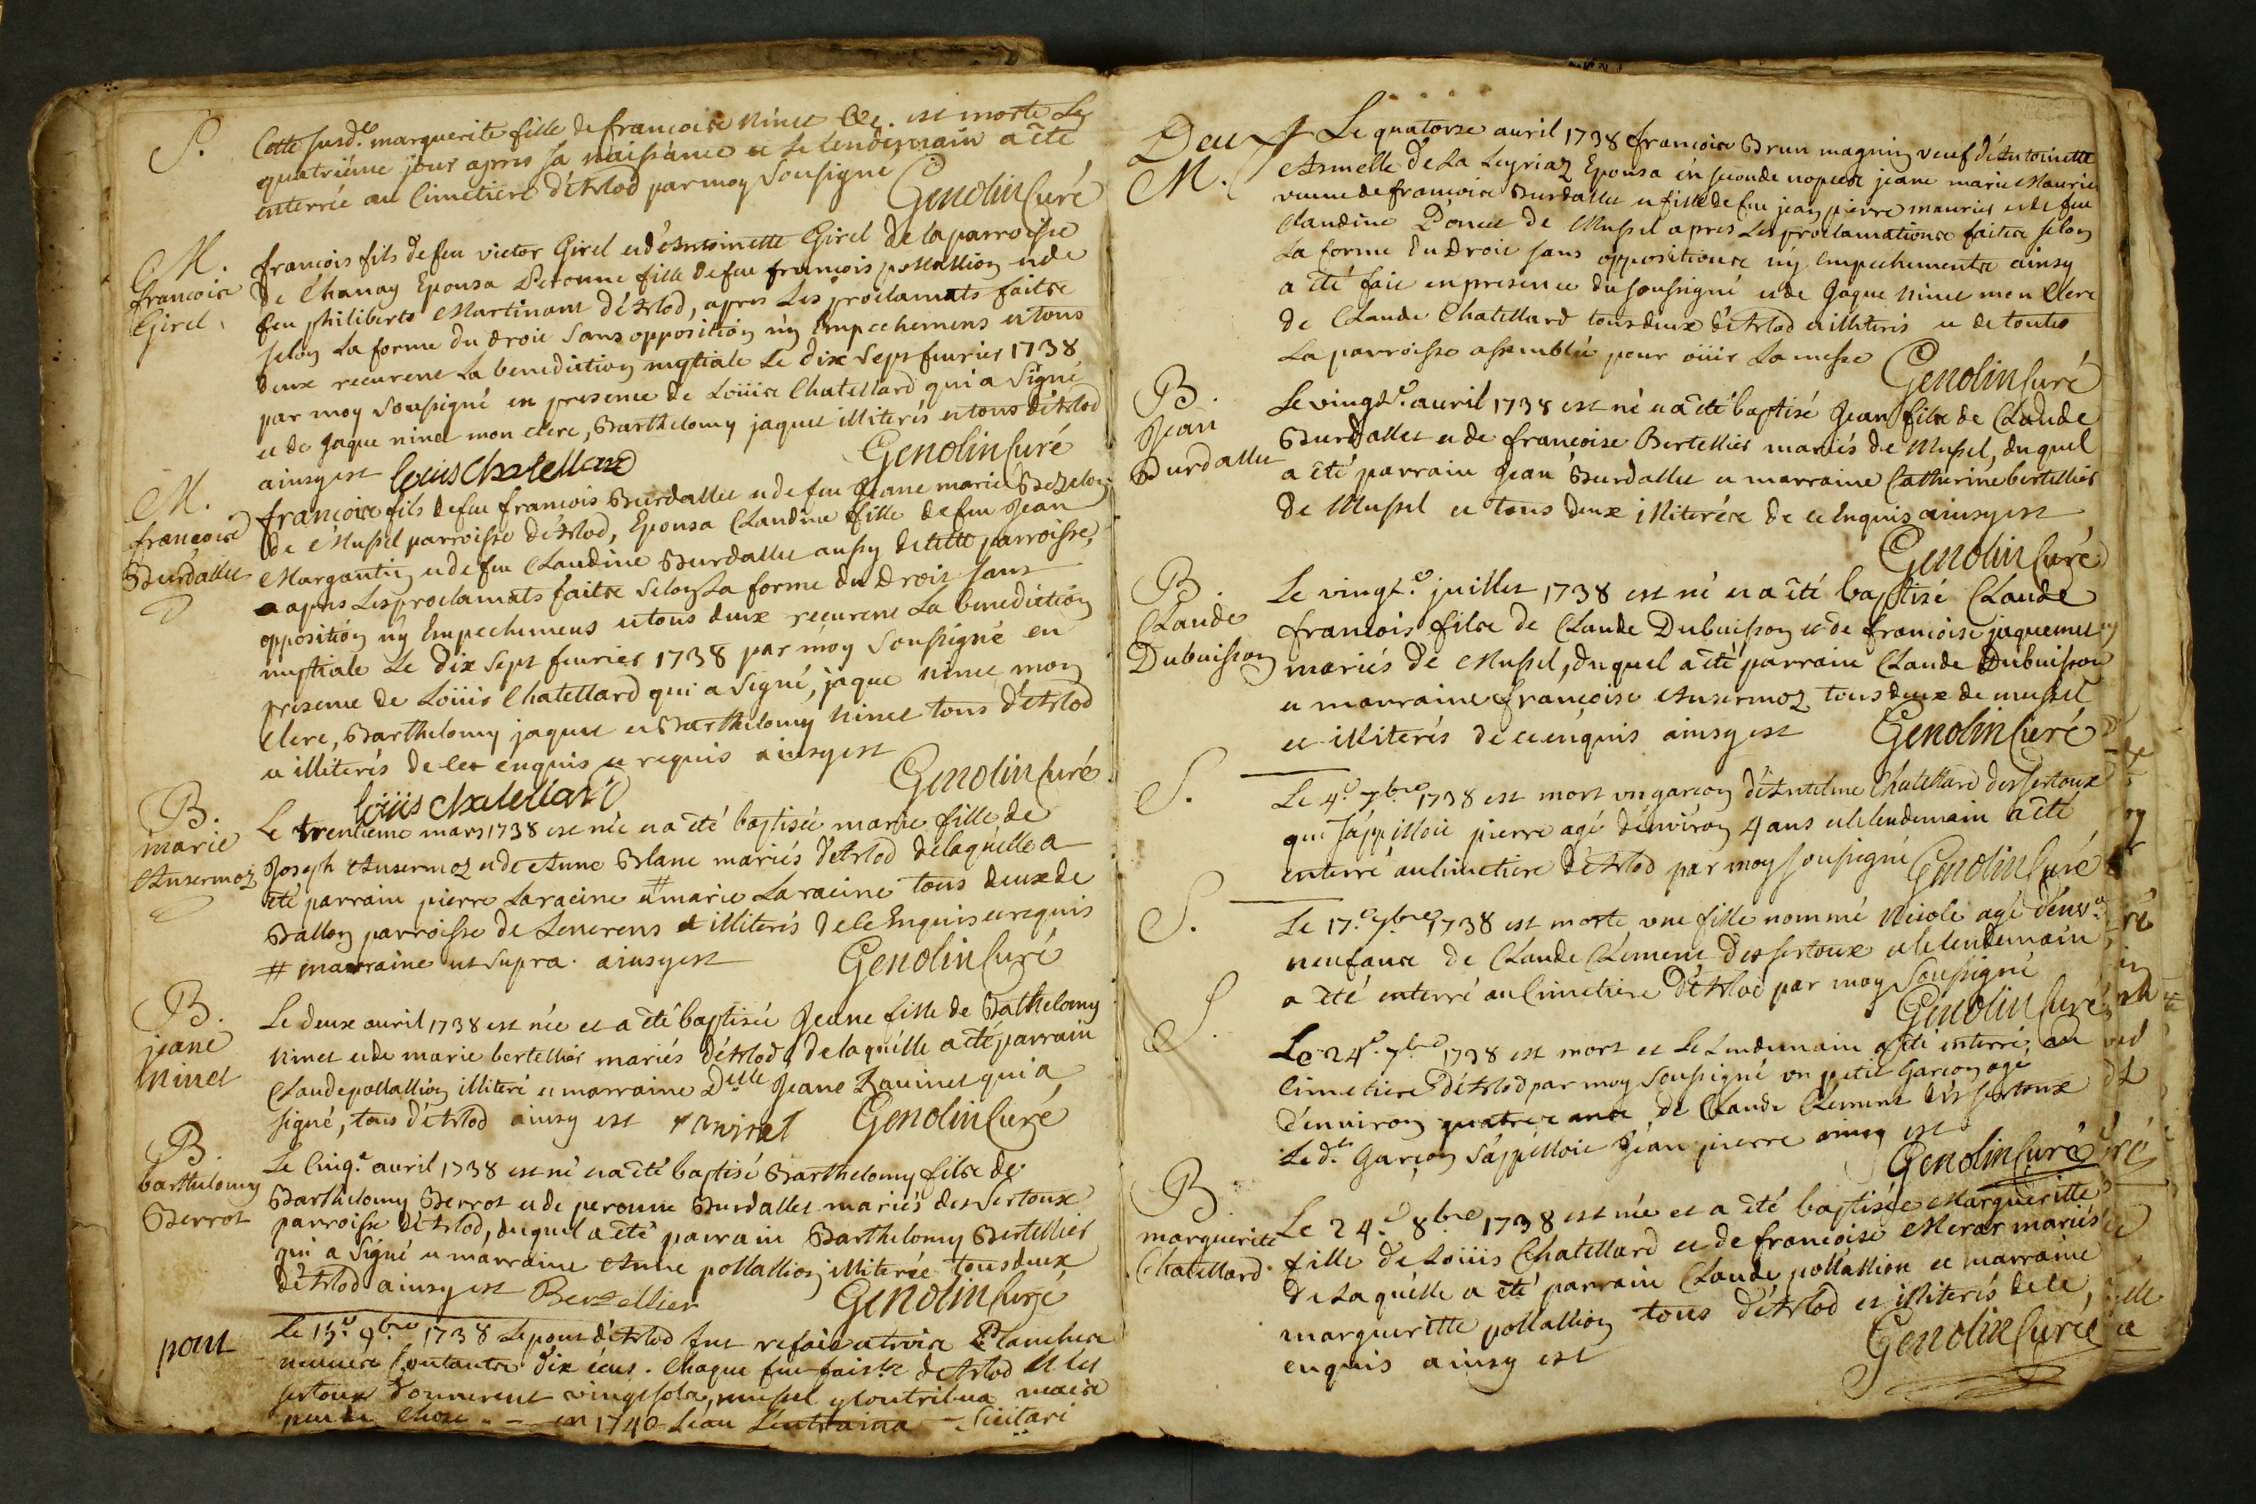 S.
Cette susd.e marguerite fille de francoise Ninet &c. est morte Le
quatriéme jour apres sa naissance et le lendemain a êté
enterrée au Cimetiere d'Arlod par moy Soussigné
Genolin Curé
M.
francois
Girel
francois fils de feu victor Girel et d'Antoinette Girel de la parroisse
de Chanay Epousa Peronne fille de feu francois pollallion et de
feu philiberte Martinant d'Arlod, apres Les proclamats faites
selon La forme du droit Sans opposition ny Empechemens et tous
deux recurent La benediction nuptiale Le dix Sept feurier 1738
par moy Soussigné en presence de Loüis Chatellard qui a Signé
et de Jaque ninet mon clerc, Barthelomy jaquet illiterés et tous d'Arlod
ainsy est Louis Chatellard
Genolin Curé
M.
francois
Burdallet
francois fils de feu francois Burdallet et de feu Jeane marie
de Mussel parroisse d'Arlod, Epousa Claudine fille de feu Jean
Margantin et de feu Claudine Burdallet aussy de cette parroisse,
apres Les proclamats faites Selon La forme du Droit sans
opposition ny Empechemens et tous deux recurent La benediction
nuptiale Le dix Sept feurier 1738 par moy Soussigné en
presence de Loüis Chatellard qui a Signé, jaque ninet mon
clerc, Barthelomy jaquet et Barthelomy Ninet tous d'Arlod
et illiterés de ce enquis et requis ainsy est
Loüis Chatellard
Genolin Curé
B.
marie
Ansermoz
Le trentieme mars 1738 est née et a êté baptisée marie fille de
Joseph Ansermoz et de Anne Blanc mariés d'Arlod de laquelle a
êté parrain pierre Laracine et # marie Laracine tous deux de
Ballon parroisse de Lencrens et illiterés de ce Enquis et requis
# marraine ut supra. ainsy est
Genolin Curé
B.
jeane
Ninet
Le deux auril 1738 est née et a êté baptisée Jeane fille de Bathelomy
Ninet et de marie bertellier mariés d'Arlod de laquelle a êté parrain
Claude pollallion illiteré et marraine D.elle Jeane Rauinet qui a
signé, tous d'Arlod ainsy est
Genolin Curé
B.
barthelomy
Berrot
Le Cinq.e auril 1738 est né et a êté baptisé Barthelomy fils de
Barthelomy Berrot et de peronne Burdallet mariés des Sertoux
parroisse d'Arlod, duquel a êté parrain Barthelomy Bertellier
qui a Signé et marraine Anne pollallion illiterée tous deux
d'Arlod ainsy est Bertellier
Genolin Curé
pont
Le 15.e 9bre 1738 Le pont d'Arlod fut refait a trois Planches
neuues Coutantes dix écus. Chaque feu d'Arlod et des
sertoux donnerent vingt sols, mussel y Contribua mais
peu de chose - - en 1740 L'eau L'entraina
Deux
M.
Le quatorze auril 1738 francois Brun magnin veuf d'Antoinette
Armelle de La Leyriaz Epousa en seconde nopces jeane marie Maurier
veuue de francois Burdallet et fille de feu jean pierre maurier et de feu
Claudine Poncet de Mussel apres Les proclamations faites selon
La forme du Droit sans oppositions ny Empechements ainsy
a êté fait en presence du soussigné et de Jaque Ninet mon Clerc
de Claude Chatellard tous deux d'Arlod et illiterés et de toute
La parroisse assemblée pour oüir La messe
Genolin Curé
B.
Jean
Burdallet
Le vingt.e auril 1738 est né et a êté baptisé Jean fils de Claude
Burdallet et de francoise Bertellier mariés de Mussel, duquel
a êté parrain Jean Burdallet et marraine Catherine bertellier
de Mussel et tous deux illiterés de ce Enquis ainsy est
Genolin Curé
B.
Claude
Dubuisson
Le vingt.e juillet 1738 est né et a êté baptisé Claude
francois fils de Claude Dubuisson et de francoise jaquemet
mariés de Mussel, duquel a êté parrain Claude Dubuisson
et marraine francoise Ansermoz tous deux de mussel
et illiterés de ce enquis ainsy est
Genolin Curé
S.
Le 4.e 7bre 1738 est mort un garcon d'Antelme Chatellard des sertoux
qui s'appelloit pierre agé d'environ 4 ans et le lendemain a êté
enterré au Cimetiere d'Arlod par moy soussigné
Genolin Curé
S.
Le 17.e 7bre 1738 est morte une fille nommé Nicole agé d'env.n
neuf ans de Claude Clement des sertoux et le lendemain
a êté enterré au Cimetiere d'Arlod par moy Soussigné
Genolin Curé
S.
Le 24.e 7bre 1738 est mort et Le Lendemain a êté enterré au
Cimetiere d'Arlod par moy Soussigné un petit Garcon agé
d'enuiron quatre ans de Claude Clement des sertoux
Le d.t Garcon s'appelloit Jean pierre ainsy est
Genolin Curé
B.
marguerite
Chatellard
Le 24.e 8bre 1738 est née et a êté baptisée Margueritte
fille de Loüis Chatellard et de francoise Merar mariés
de Laquelle a êté parrain Claude pollallion et marraine
margueritte pollallion tous d'Arlod et illiterés de ce,
enquis ainsy est
Genolin Curé